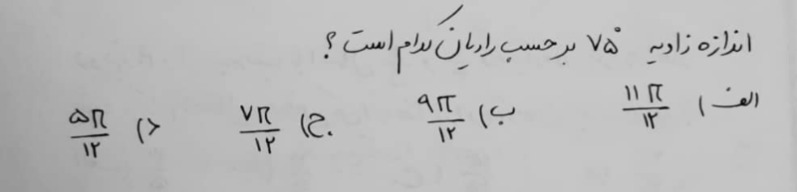 اندازه زاویه ۷۵° بر حسب رادیان کدام است؟
الف) ۱۱π/۱۲ ب) ۹π/۱۲ ج) ۷π/۱۲ د) ۵π/۱۲